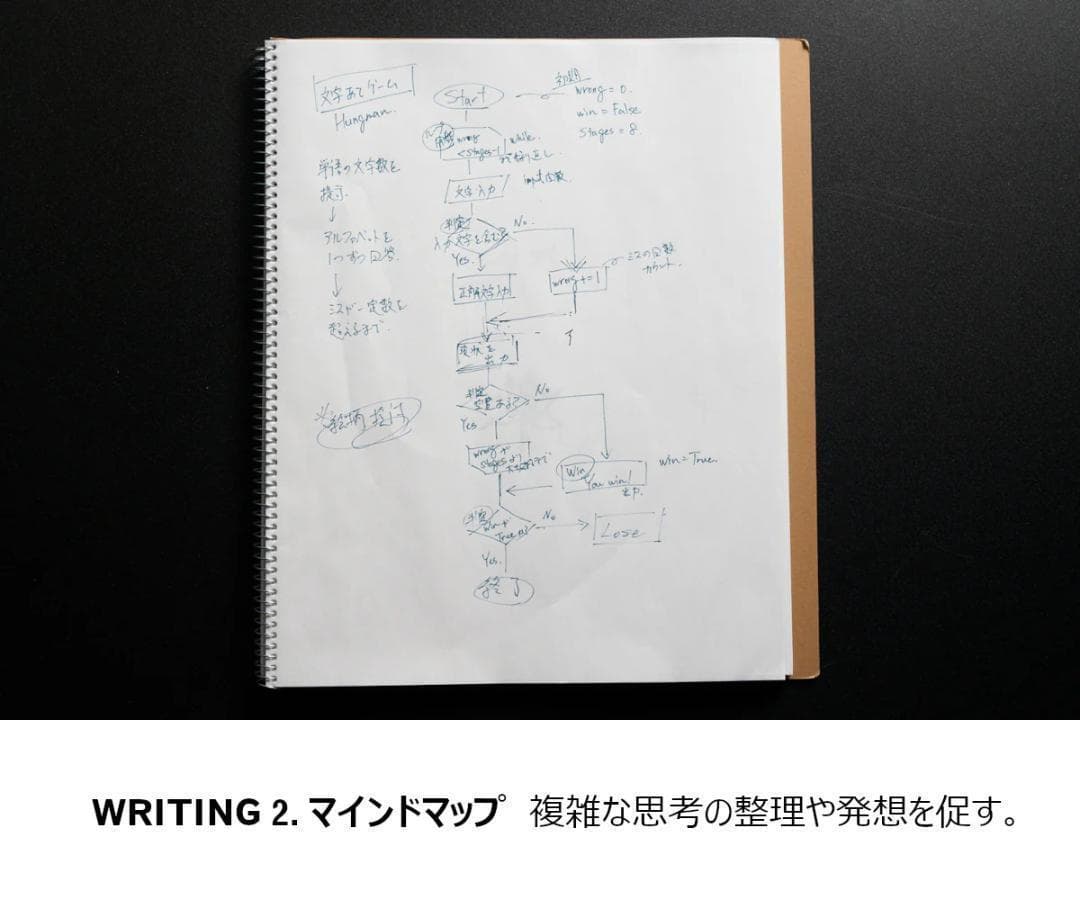 文字あてゲーム
Hangman.
単語の文字数を
提示.
↓
アルファベットを
1つずつ回答.
↓
ミスが一定数を
超えるまで.
※絵柄提示
Start
初期
wrong = 0.
win = False
Stages = 8.
wrong
< stages-1
while
で繰り返し
文字入力
input 関数
判定
入力文字を含む?
No.
Yes.
正解文字入力
wrong += 1
ミスの回数
カウント.
現状を
出力
判定
空置ある?
No
Yes
wrong が
stages より
Win
You win!
出力.
win = True.
判定
win が
True か?
No
Lose
Yes.
終了
WRITING 2. マインドマップ 複雑な思考の整理や発想を促す。